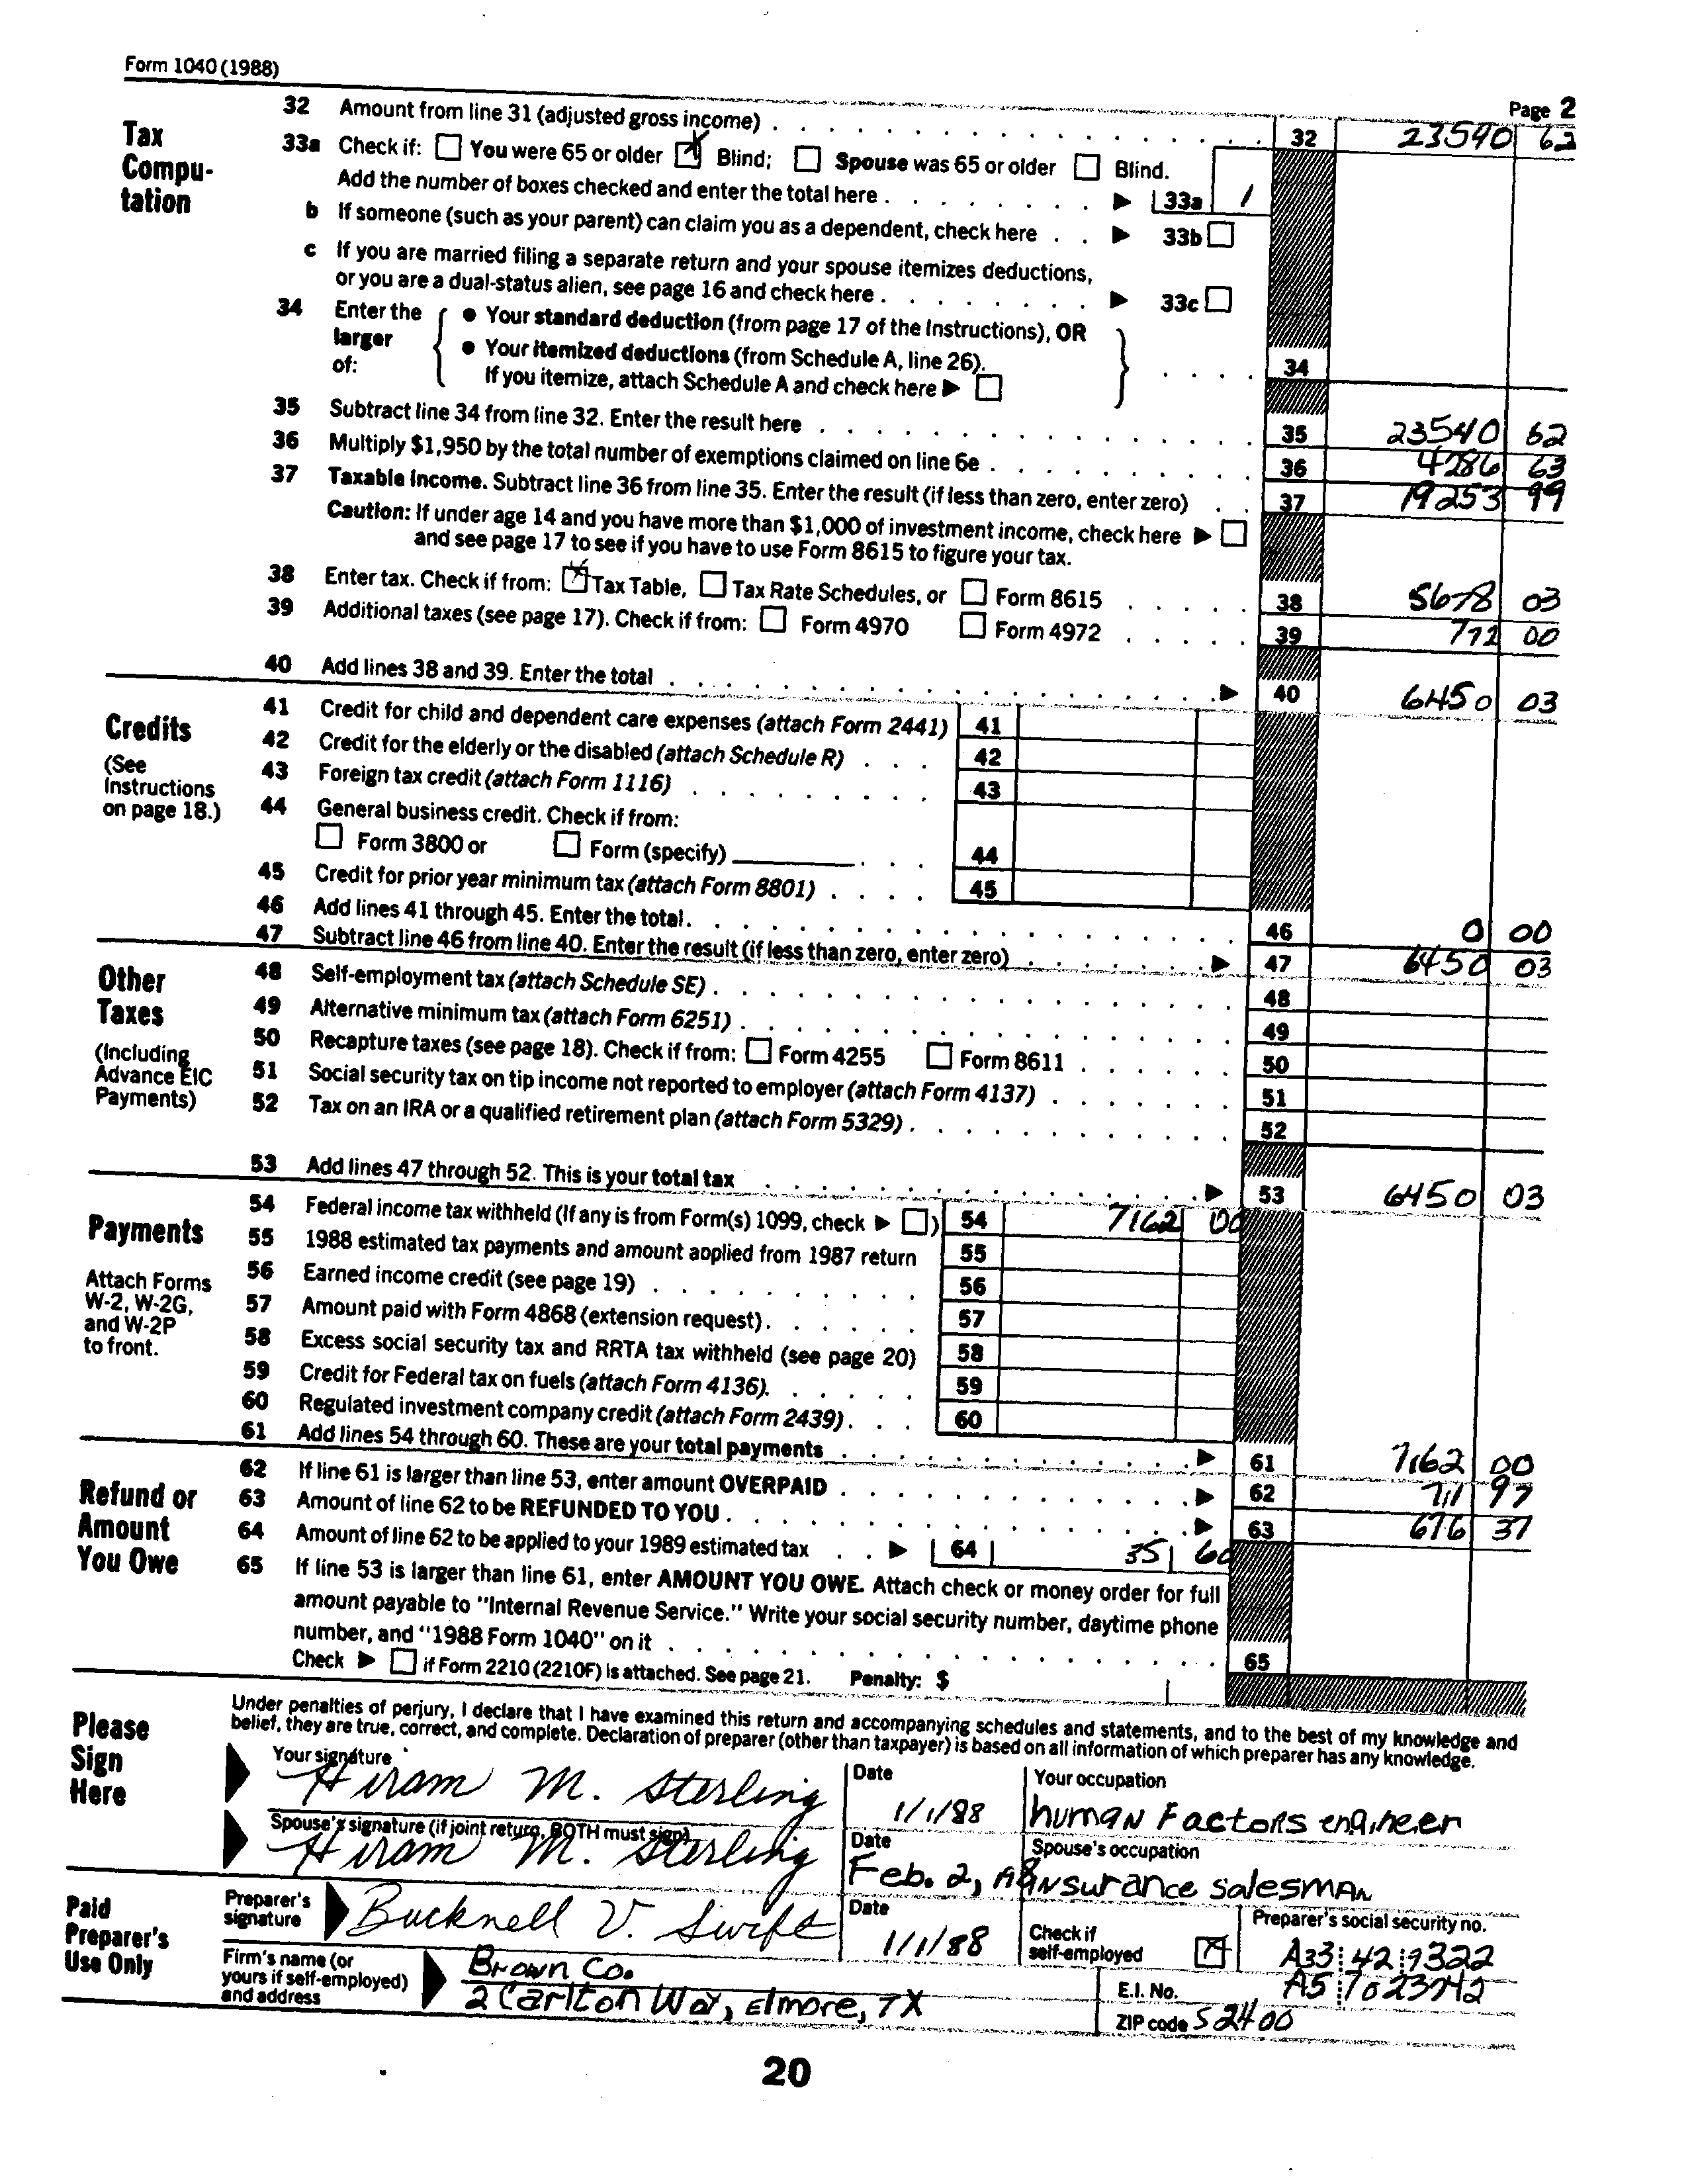 Form 1040 (1988)
Page 2
Tax Compu-tation
32 Amount from line 31 (adjusted gross income) . . . 32 23540 62
33a Check if: You were 65 or older Blind; Spouse was 65 or older Blind.
Add the number of boxes checked and enter the total here . . . 33a 1
b If someone (such as your parent) can claim you as a dependent, check here . . 33b
c If you are married filing a separate return and your spouse itemizes deductions,
or you are a dual-status alien, see page 16 and check here . . . 33c
34 Enter the larger of:
● Your standard deduction (from page 17 of the Instructions), OR
● Your itemized deductions (from Schedule A, line 26).
If you itemize, attach Schedule A and check here . . . . 34
35 Subtract line 34 from line 32. Enter the result here . . . 35 23540 62
36 Multiply $1,950 by the total number of exemptions claimed on line 6e . . . 36 4286 63
37 Taxable income. Subtract line 36 from line 35. Enter the result (if less than zero, enter zero) . . 37 19253 99
Caution: If under age 14 and you have more than $1,000 of investment income, check here
and see page 17 to see if you have to use Form 8615 to figure your tax.
38 Enter tax. Check if from: Tax Table, Tax Rate Schedules, or Form 8615 . . . 38 5678 03
39 Additional taxes (see page 17). Check if from: Form 4970 Form 4972 . . . 39 772 00
40 Add lines 38 and 39. Enter the total . . . 40 6450 03
Credits
(See Instructions on page 18.)
41 Credit for child and dependent care expenses (attach Form 2441) 41
42 Credit for the elderly or the disabled (attach Schedule R) . . . 42
43 Foreign tax credit (attach Form 1116) . . . 43
44 General business credit. Check if from:
Form 3800 or Form (specify) . . . 44
45 Credit for prior year minimum tax (attach Form 8801) . . . 45
46 Add lines 41 through 45. Enter the total . . . 46 0 00
47 Subtract line 46 from line 40. Enter the result (if less than zero, enter zero) . . . 47 6450 03
Other Taxes
(Including Advance EIC Payments)
48 Self-employment tax (attach Schedule SE) . . . 48
49 Alternative minimum tax (attach Form 6251) . . . 49
50 Recapture taxes (see page 18). Check if from: Form 4255 Form 8611 . . . 50
51 Social security tax on tip income not reported to employer (attach Form 4137) . . . 51
52 Tax on an IRA or a qualified retirement plan (attach Form 5329) . . . 52
53 Add lines 47 through 52. This is your total tax . . . 53 6450 03
Payments
Attach Forms W-2, W-2G, and W-2P to front.
54 Federal income tax withheld (If any is from Form(s) 1099, check ) 54 7162 00
55 1988 estimated tax payments and amount applied from 1987 return 55
56 Earned income credit (see page 19) . . . 56
57 Amount paid with Form 4868 (extension request) . . . 57
58 Excess social security tax and RRTA tax withheld (see page 20) 58
59 Credit for Federal tax on fuels (attach Form 4136) . . . 59
60 Regulated investment company credit (attach Form 2439) . . . 60
61 Add lines 54 through 60. These are your total payments . . . 61 7162 00
Refund or Amount You Owe
62 If line 61 is larger than line 53, enter amount OVERPAID . . . 62 711 97
63 Amount of line 62 to be REFUNDED TO YOU . . . 63 676 37
64 Amount of line 62 to be applied to your 1989 estimated tax . . 64 35 60
65 If line 53 is larger than line 61, enter AMOUNT YOU OWE. Attach check or money order for full
amount payable to "Internal Revenue Service." Write your social security number, daytime phone
number, and "1988 Form 1040" on it . . . 65
Check if Form 2210 (2210F) is attached. See page 21. Penalty: $
Please Sign Here
Under penalties of perjury, I declare that I have examined this return and accompanying schedules and statements, and to the best of my knowledge and
belief, they are true, correct, and complete. Declaration of preparer (other than taxpayer) is based on all information of which preparer has any knowledge.
Your signature Date Your occupation
Hiram M. Sterling 1/1/88 human Factors engineer
Spouse's signature (if joint return, BOTH must sign) Date Spouse's occupation
Hiram M. Sterling Feb. 2, insurance salesman
Paid Preparer's Use Only
Preparer's signature Bucknell V. Swift Date 1/1/88 Check if self-employed Preparer's social security no. A33 42 9322
Firm's name (or yours if self-employed) and address Brown Co. E.I. No. A5 7023942
2 Carlton Way, Elmore, TX ZIP code 52400
20